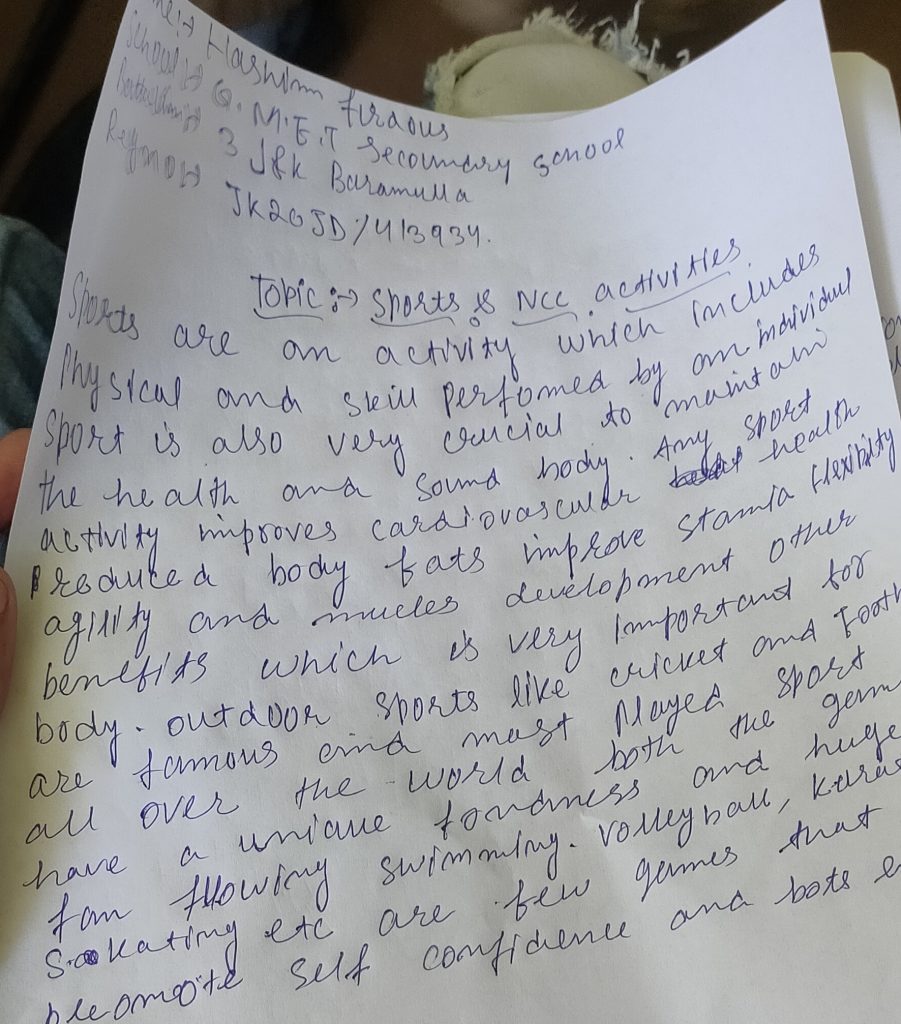 me:→ Hashim firdous
School:→ G.M.E.T Secoundary school
Battalion:→ 3 J&k Baramulla
Regmon:→ JK20JD/413934.
Topic:→ Sports & NCC activities.
Sports are an activity which includes
Physical and skill perfomed by an individual
Sport is also very crucial to maintain
the health and sound body. Any sport
activity improves cardiovascular health
Preduked body fats improve stamia flexibility
agility and mucles development other
benefits which is very important for
body. outdoor sports like cricket and footb
are famous and mast Played sport
all over the world both the gam
have a unique fondness and huge
fan fllowing swimming. volleyball, karas
Skating etc are few games that
pleomote self confidence and bots e